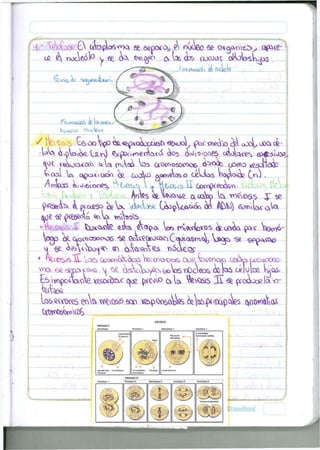 Telofase: El citoplasma se separa, el núcleo se organiza, apare-
ce el nucleólo y se da origen a las dos nuevas células hijas.
Formación del núcleo
Surco de segmentación
Formación de la membrana nuclear
✓ Meiosis: Es un tipo de reproducción sexual, por medio del cual, una cé-
lula diploide (2n) experimentará dos divisiones celulares sucesivas,
que reducirán a la mitad los cromosomas dando como resultado
final la aparición de cuatro gametos o células haploide (n).
Ambas divisiones, Meiosis I y Meiosis II comprenden: Profase, Meta-
fase, Anafase y Telofase. Antes de llevarse a cabo la meiosis I se
presenta el proceso de la interfase (duplicación del ADN) similar a la
que se presentó en la mitosis.
• Meiosis I: Durante esta etapa los miembros de cada par homó-
logo de cromosomas se entrecruzan (quiasma), luego se separan
y se distribuyen en diferentes núcleos.
• Meiosis II: Las cromátidas hermanas que forman cada cromoso-
ma se separan y se distribuyen en los núcleos de las células hijas.
Es importante recordar que previo a la Meiosis II se produce la in-
terfase.
Los errores en la meiosis son responsables de las principales anomalías
cromosómicas.
MEIOSIS